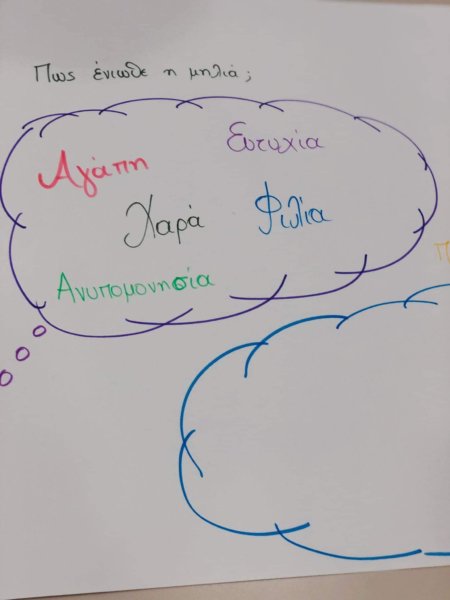 Πως ένιωθε η μηλιά;
Ευτυχία
Αγάπη
Χαρά Φιλία
Ανυπομονησία
Π